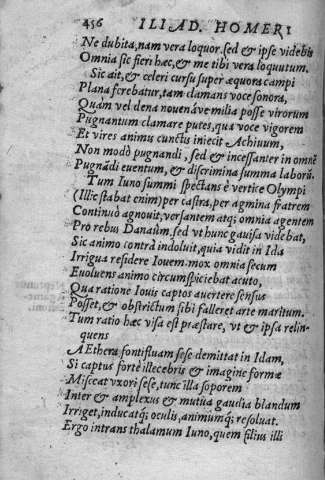 456 ILIAD. HOMERI
Ne dubita, nam vera loquor. sed & ipse videbis
Omnia sic fieri hæc, & me tibi vera loquutum.
Sic ait, & celeri cursu super æquora campi
Plana ferebatur, tam clamans voce sonora,
Quàm vel dena novenáve milia posse virorum
Pugnantum clamare putes, qua voce vigorem
Et vires animis cunctis iniecit Achiuum,
Non modò pugnandi, sed & incessanter in omnẽ
Pugnãdi euentum, & discrimina summa laborũ.
Tum Iuno summi spectans è vertice Olympi
(Illic stabat enim) per castra, per agmina fratrem
Continuò agnouit, versantem atq; omnia agentem
Pro rebus Danaûm, sed vt hunc gauisa videbat,
Sic animo contrà indoluit, quia vidit in Ida
Irrigua residere Iouem. mox omnia secum
Euoluens animo circumspiciebat acuto,
Qua ratione Iouis captos auertere sensus
Posset, & obstrictum sibi falleret arte maritum.
Tum ratio hæc visa est præstare, vt & ipsa relin-
quens
AEthera fontifluam sese demittat in Idam,
Si captus fortè illecebris & imagine formæ
Misceat vxori sese, tunc illa soporem
Inter & amplexus & mutua gaudia blandum
Irriget, inducatq; oculis, animumq; resoluat.
Ergo intrans thalamum Iuno, quem filius illi